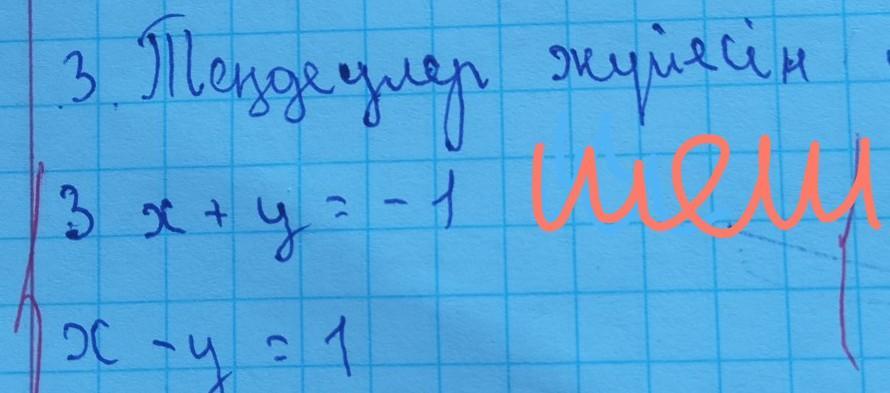 3. Теңдеулер жүйесін
шеш
3 x + y = - 1
x - y = 1